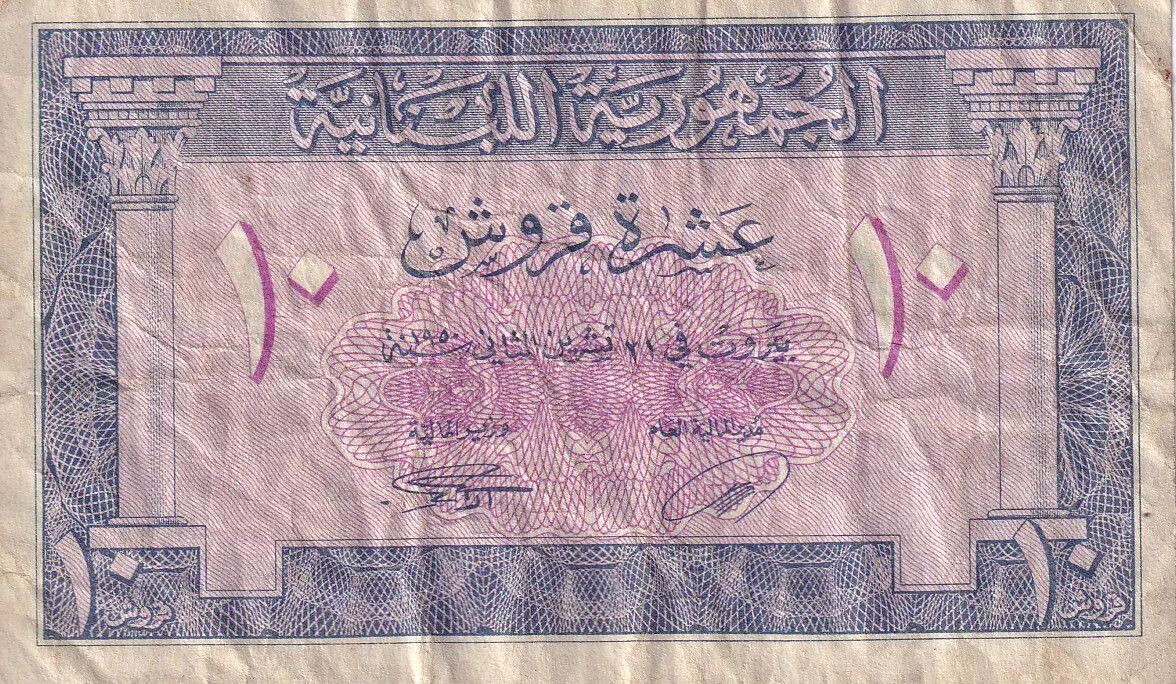 الجُمهُوريَّة اللبْنَانيَّة
عَشرة قروش
١٠ ١٠
بيروت في ٢١ تشرين الثاني سنة ١٩٥٠
مدير المالية العام وزير المالية
١٠ قروش ١٠ قروش